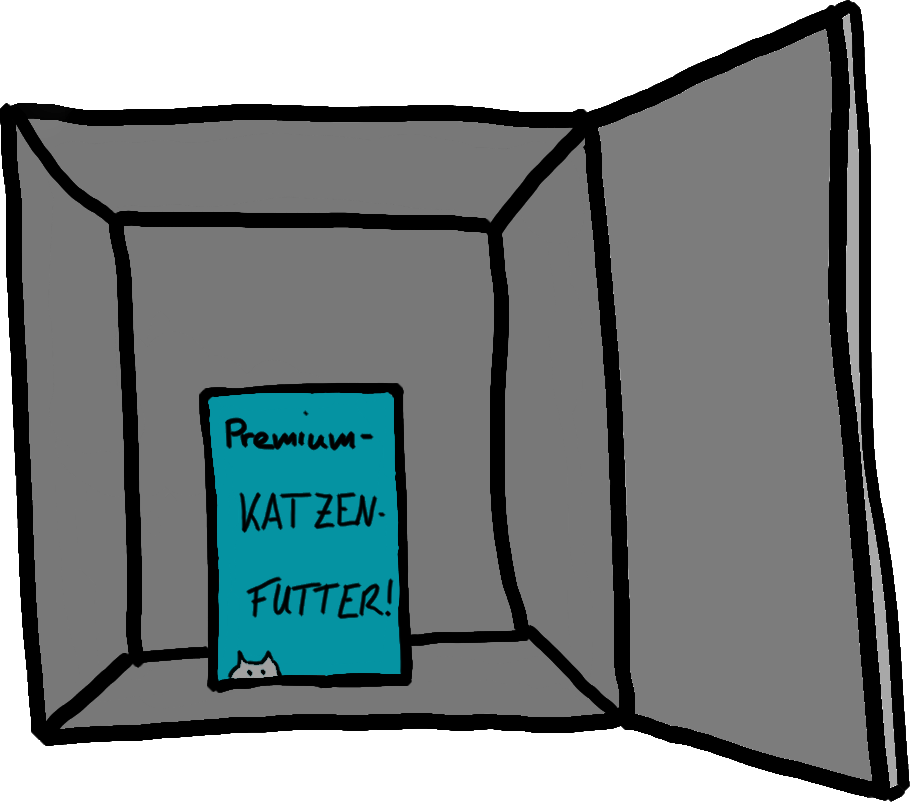 Premium-
KATZEN-
FUTTER!